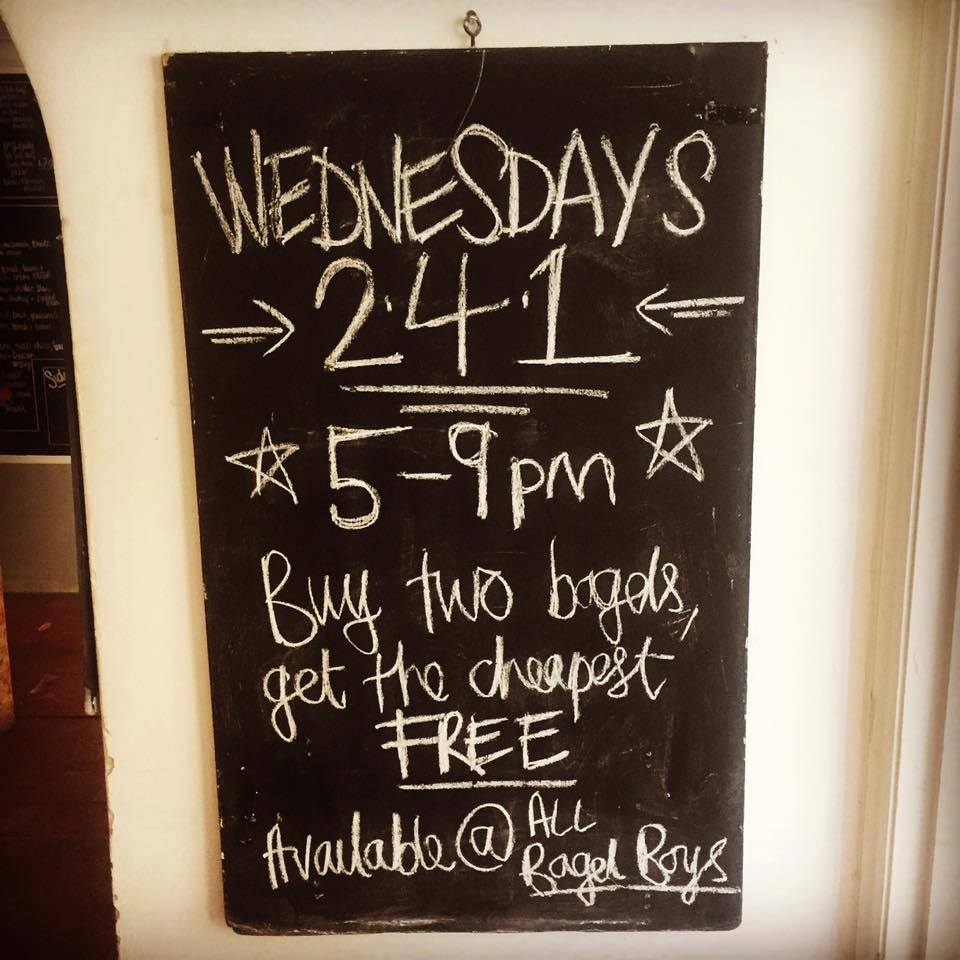 WEDNESDAYS
2.4.1
5-9pm
Buy two bagels,
get the cheapest
FREE
Available @ ALL
Bagel Boys
Side